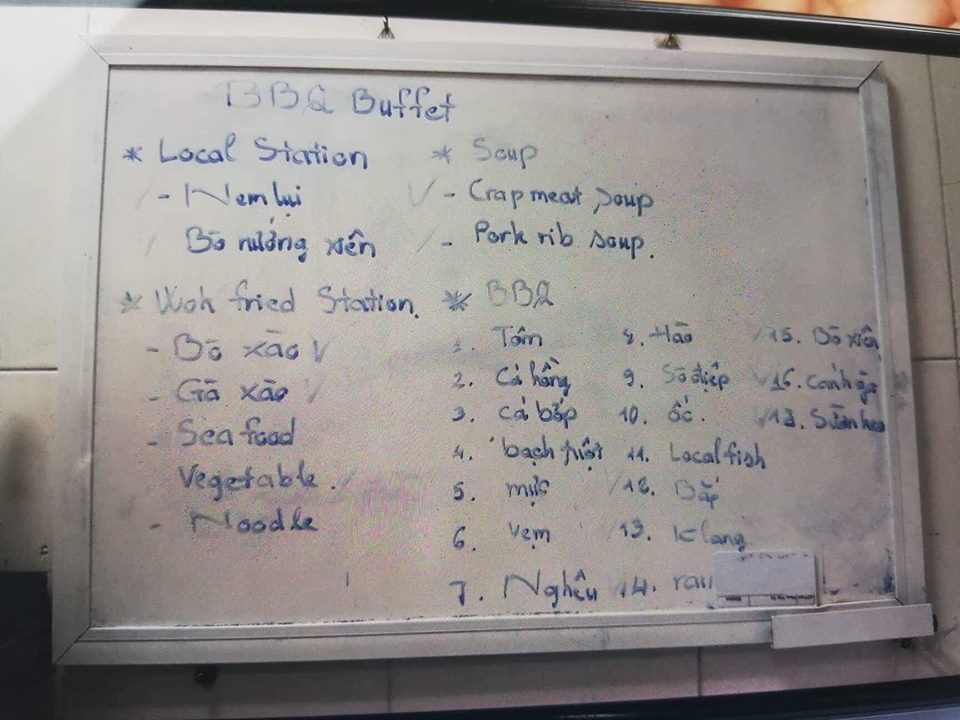 BBQ Buffet
* Local Station
- Nem lụi
Bò nướng xiên
* Soup
- Crapmeat soup
- Pork rib soup.
* Woh fried Station.
- Bò xào
- Gà xào
- Seafood
Vegetable.
- Noodle
* BBQ
1. Tôm
2. Cá hồng
3. Cá bớp
4. bạch tuột
5. mực
6. Vẹm
7. Nghêu
8. Hào
9. Sò điệp
10. ốc.
11. Local fish
12. Bắp
13. K lang
14. rau
15. Bò xiên
16. Cánh gà
17. Sườn heo